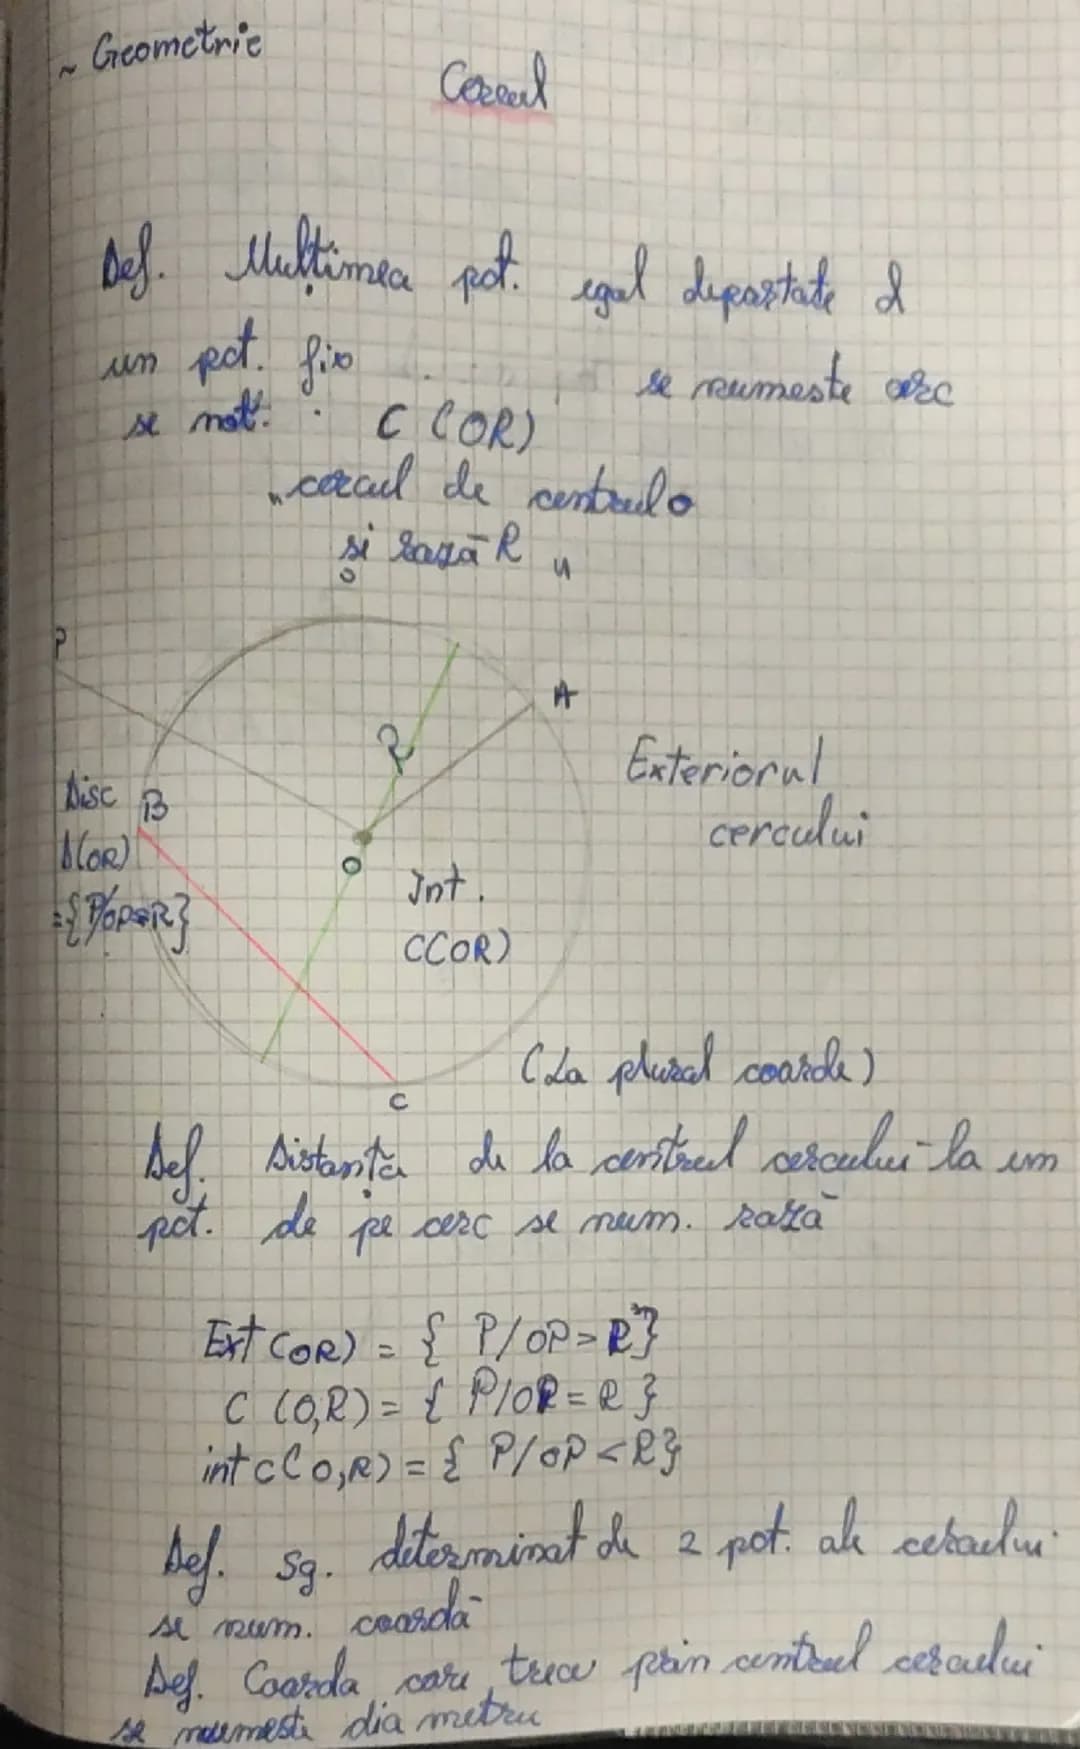 ~ Geometrie
Cercul
Def. Mulțimea pct. egal depărtate d
un pct. fix
se numeste cerc
se not. C (OR)
„cercul de centrul O
și rază R"
P
A
R
Exteriorul
cercului
Disc
B
Δ(OR)
O
Int.
C(OR)
(La plural coarde)
C
Def. Distanța de la centrul cercului la un
pct. de pe cerc se num. rază
Ext C(OR) = { P/OP > R }
C (O,R) = { P/OP = R }
int C(O,R) = { P/OP < R }
Def. Sg. determinat de 2 pct. ale cercului
se num. coardă
Def. Coarda care trece prin centrul cercului
se numeste diametru